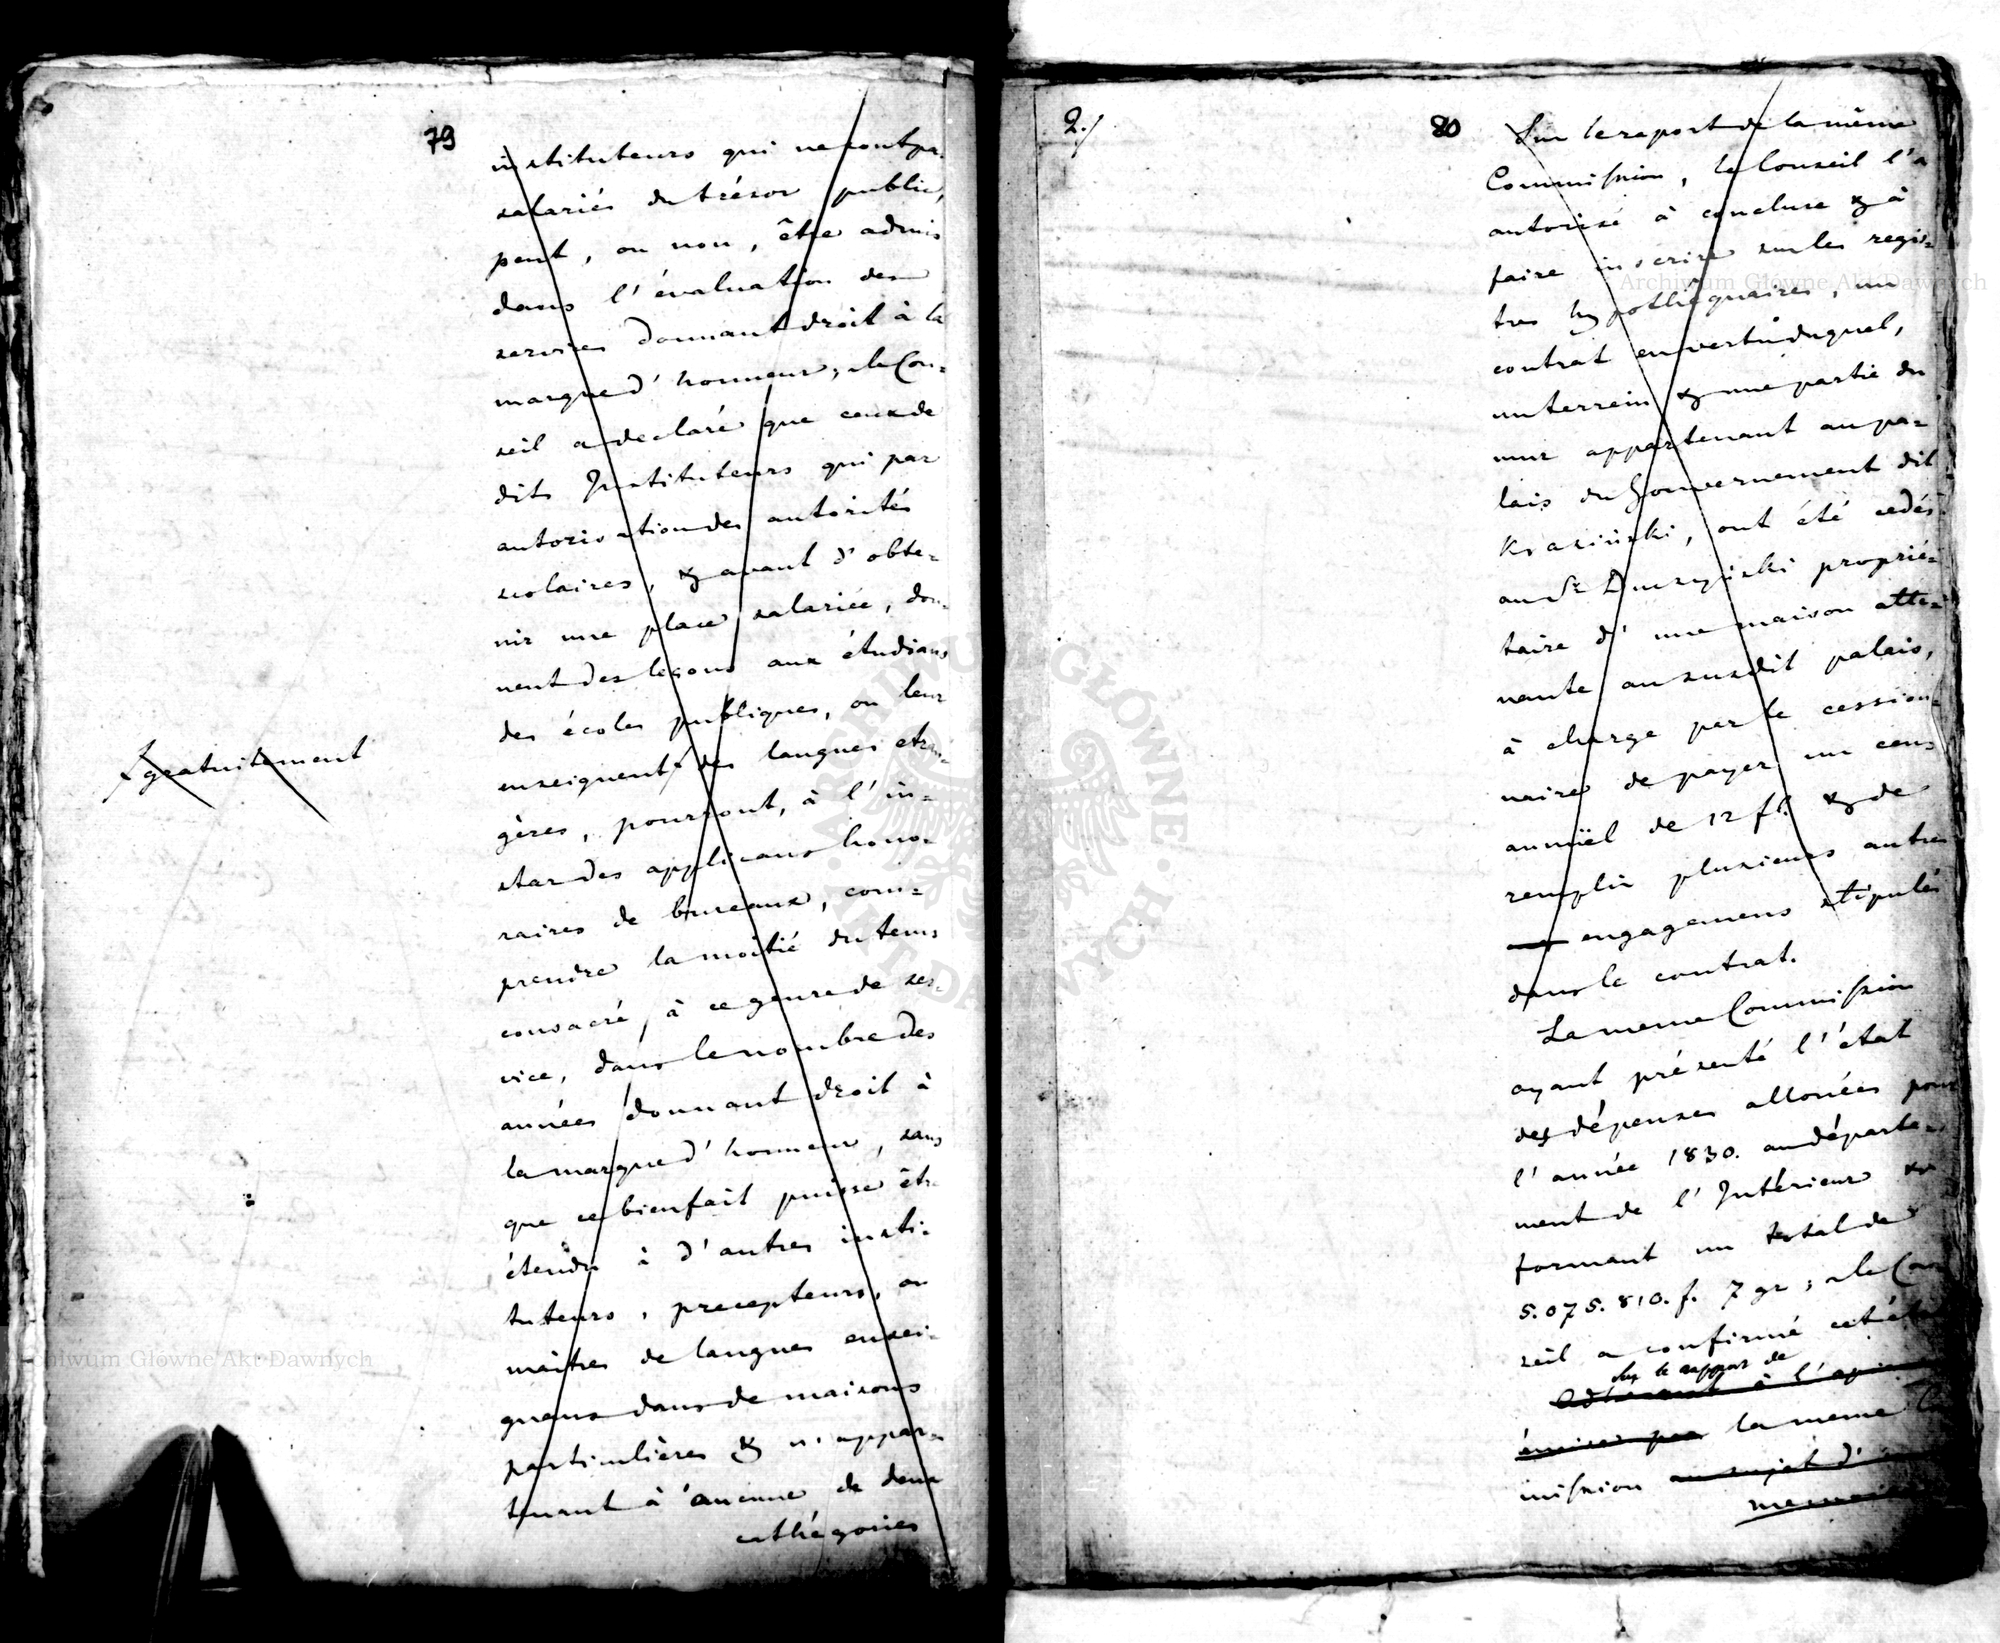 79
instituteurs qui ne sont pas
salariés du trésor public,
peut, ou non, être admis
dans l'évaluation des
services donnant droit à la
marque d'honneur; le Con=
seil a declaré que ceux de
dits Instituteurs qui par
autorisation des autorités
scolaires, & avant d'obte=
nir une place salariée, don=
nent des leçons aux étudians
des écoles publiques, ou leur
enseignent des langues etran=
gères, pourront, à l'in=
star des applicans hono=
raires de bureaux, com=
prendre la moitié du tems
consacré à ce genre de ser=
vice, dans le nombre des
années donnant droit à
la marque d'honneur, sans
que ce bienfait puisse être
étendu à d'autres insti=
tuteurs, precepteurs, ou
maîtres de langues ensei=
gnans dans de maisons
particulières & n'appar=
tenant à aucune de deux
cathégories
gratuitement
2./
80
Sur le raport de la même
Commission, le Conseil l'a
autorisé à conclure & à
faire inscrire sur les regis=
tres hypothéquaires, un
contrat en vertu duquel,
un terrein & une partie du
mur appartenant au pa=
lais du Gouvernement dit
Krasiński, ont été cedés
au Sr. propriè=
taire d'une maison atte=
nante au susdit palais,
à charge par le cession=
naire de payer un cens
annüel de 12 fl. & de
remplir plusieurs autres
engagemens stipulés
dans le contrat.
La meme Commission
ayant présenté l'état
des dépenses allouées pour
l'année 1830. au départe=
ment de l'Intérieur &
formant un total de
5.075.810. f. 7 gr; le Con
seil a confirmé cet état
Sur le rapport de
Adhérant à l'opinion
émise par la meme Com
mission au sujet d'un